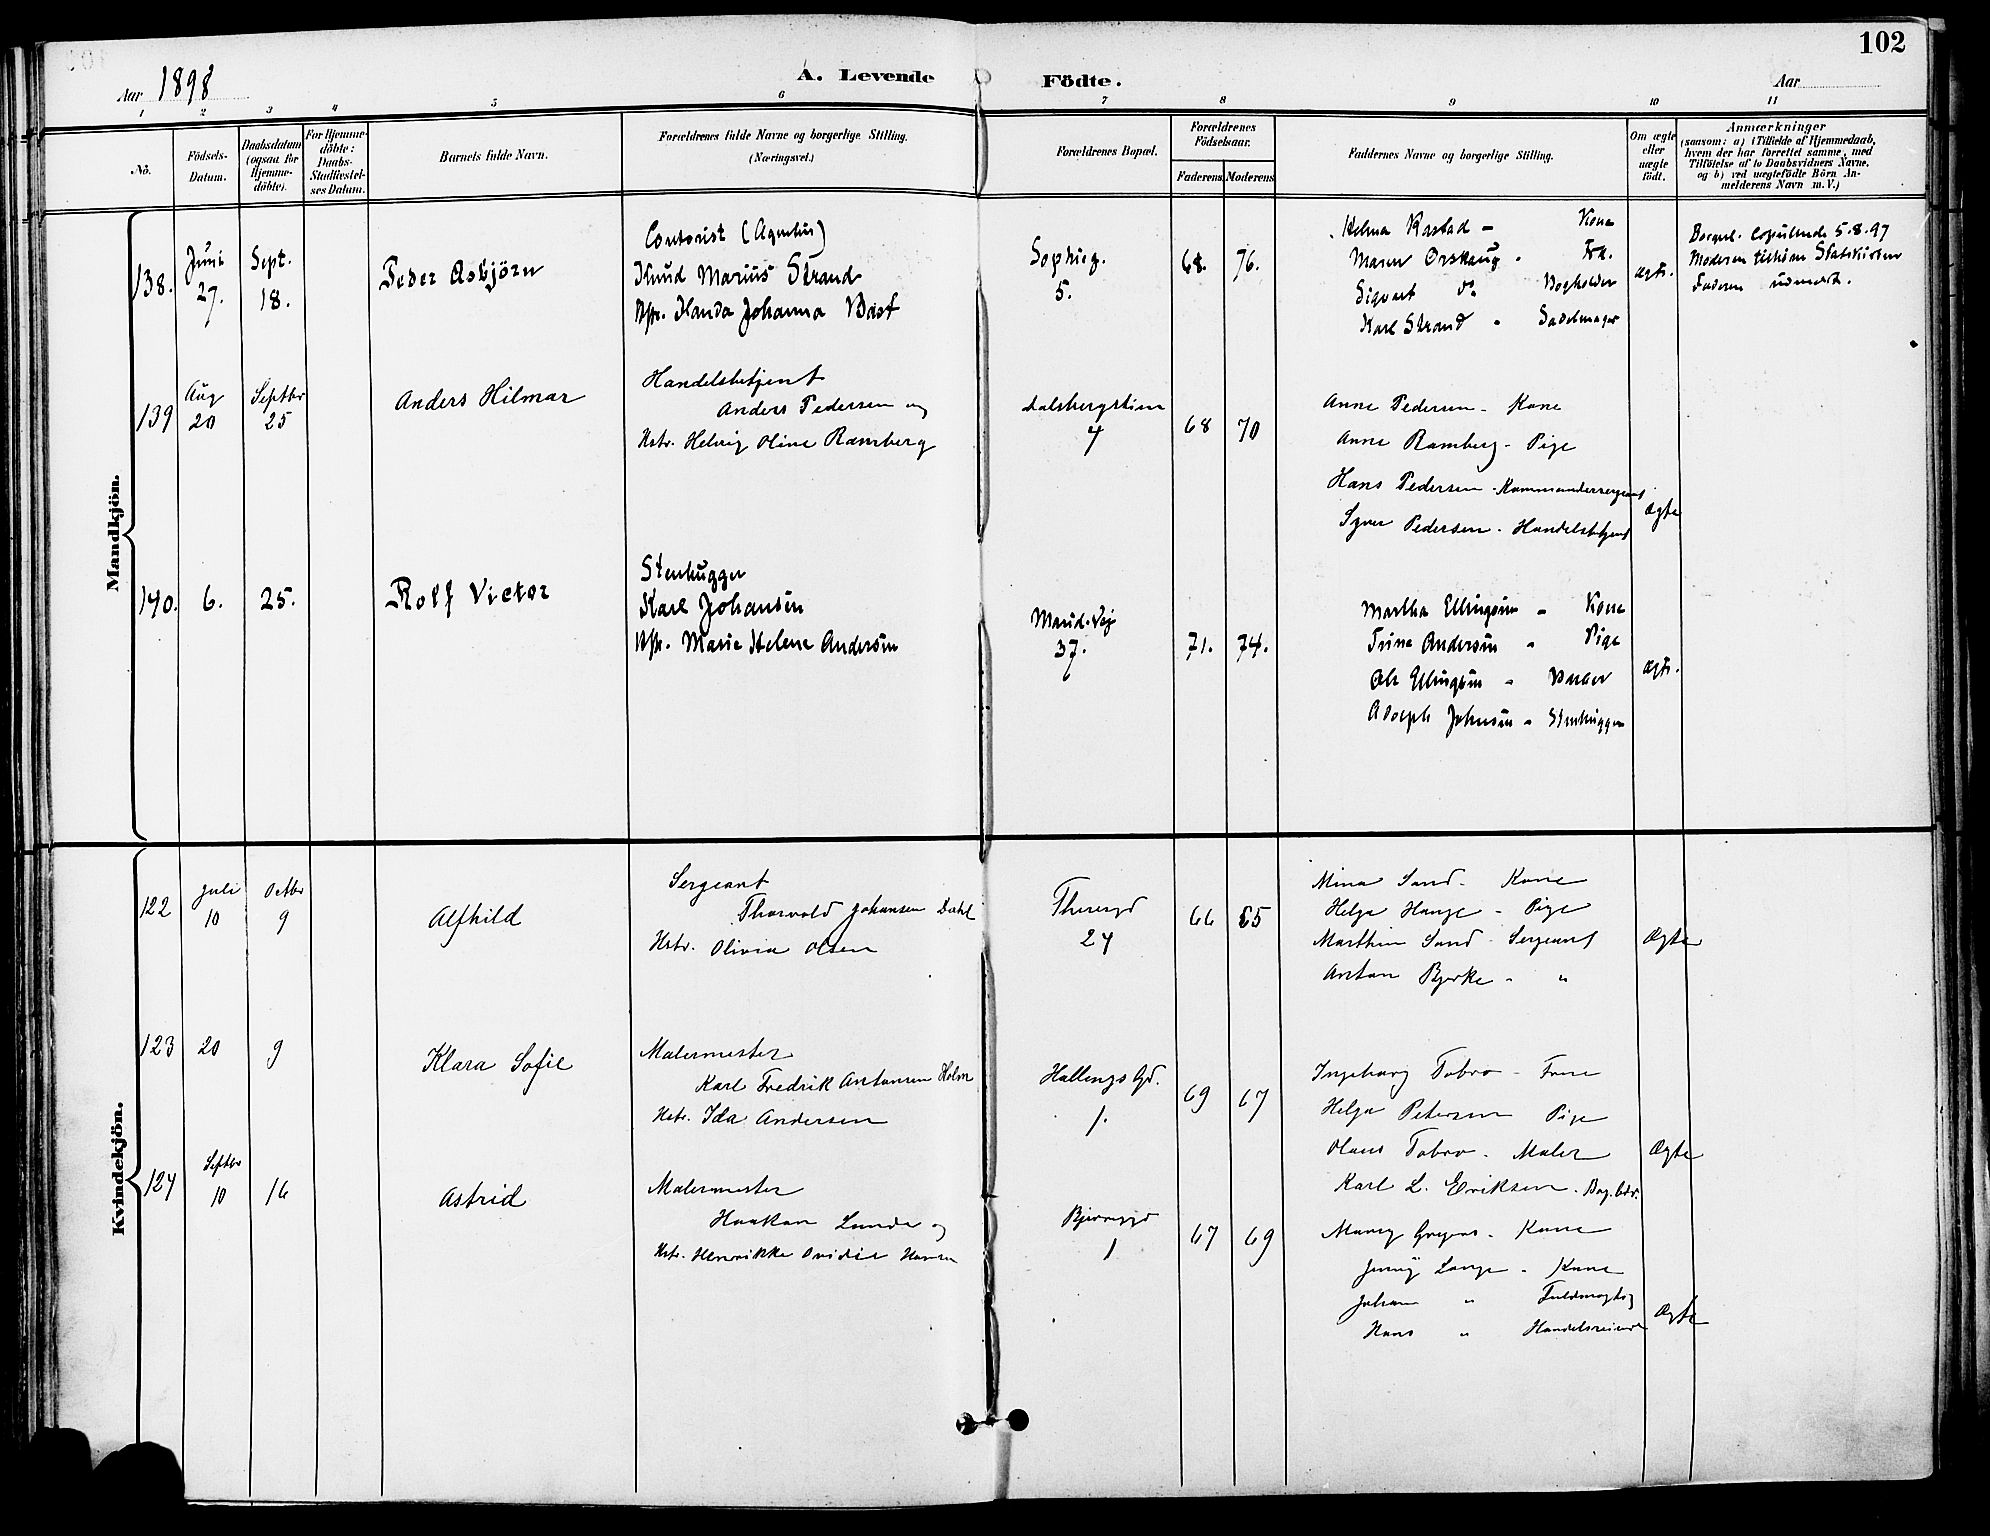 102
Aar 1898
A. Levende Födte.
Aar
1 2 3 4 5 6 7 8 9 10 11
No.
Födsels-Datum.
Daabsdatum (ogsaa for Hjemme-döbte).
For Hjemme-döbte: Daabs-Stadfæstel-ses Datum.
Barnets fulde Navn.
Forældrenes fulde Navne og borgerlige Stilling.
(Næringsvei.)
Forældrenes Bopæl.
Forældrenes Födselsaar.
Faderens. Moderens.
Faddernes Navne og borgerlige Stilling.
Om ægte eller uægte födt.
Anmærkninger
(saasom: a) i Tilfælde af Hjemmedaab,
hvem der har forrettet samme, med
Tilföielse af to Daabsvidners Navne,
og b) ved uægtefödte Börn An-
melderens Navn m. V.)
Mandkjön.
138. Juni 27. Sept. 18.
Peder Asbjörn
Contorist (Agentur)
Knud Marius Strand
Hfr. Handa Johanna Bast
Sophieg. 5.
68. 76.
Helma Rastad - Kone
Maren Orskaug - Frk.
Sigvart do Bogholder
Karl Strand - Sadelmager
ægte.
Borgerl. copulerede 5.8.97
Moderen tilhører Statskirken
Faderen udmeldt.
139 Aug 20 Septbr 25
Anders Hilmar
Handelsbetjent
Anders Pedersen og
Hstr. Helvig Oline Ramberg
Dalsbergstien 4
68 70
Anne Pedersen - Kone
Anne Ramberg - Pige
Hans Pedersen - Kommandersergeant
Syver Pedersen - Handelsbetjent
Ægte
140. 6. 25.
Rolf Victor
Stenhugger
Karl Johansen
Hfr. Marie Helene Andersen
Marid.Vej 37.
71. 74.
Martha Ellingsen - Kone
Trine Andersen - Pige
Ole Ellingsen -
Adolph Johnsen - Stenhugger
ægte.
Kvindekjön.
122 Juli 10 Octbr 9
Alfhild
Sergeant
Thorvald Johansen Dahl
Hstr. Olivia Olsen
Theresgd 24
66 65
Mina Sand - Kone
Helga Hauge - Pige
Marthin Sand - Sergeant
Anton Bjerke - "
Ægte
123 20 9
Klara Sofie
Malermester
Karl Fredrik Antonsen Holm
Hstr. Ida Andersen
Hallings Gd. 1.
69 67
Ingeborg Tobro - Frue
Helga Petersen Pige
Olaus Tobro - Maler
Karl L. Eriksen - Bog.bdr.
Ægte
124 Septbr 10 16
Astrid
Malermester
Haakon Lunde og
Hstr. Henrikke Ovidie Hansen
Bjerregd 1
67 69
Mary Gregers - Kone
Jenny Lange - Kone
Johan " Fuldmægtig
Hans " Handelsreisende
Ægte